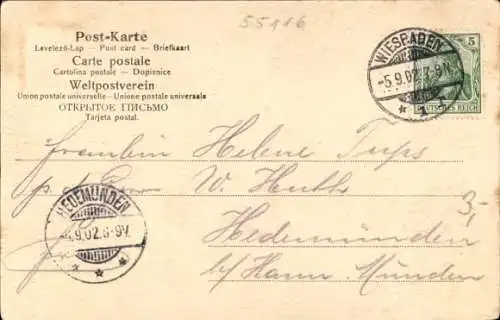 55116
Post-Karte
Levelező-Lap — Post card — Briefkaart
Carte postale
Cartolina postale — Dopisnice
Weltpostverein
Union postale universelle — Unione postale universale
ОТКРЫТОЕ ПИСЬМО
Tarjeta postal.
WIESBADEN
-5.9.02.7-8N.
* 1
5
DEUTSCHES REICH
Fräulein Helene Tups
W. Huth
3,-
HEDEMÜNDEN
9.02.8-9V.
Hedemünden
b/ Hann. Münden